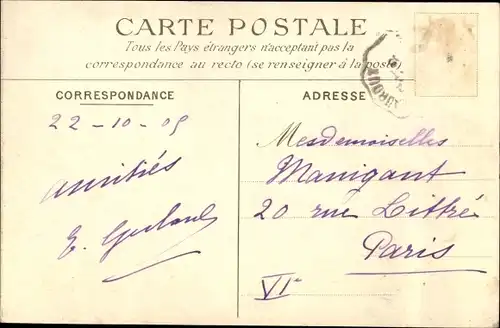 CARTE POSTALE
Tous les Pays étrangers n'acceptant pas la
correspondance au recto (se renseigner à la poste)
CORRESPONDANCE
22-10-09
amitiés
E.
ADRESSE
Mesdemoiselles
Manigant
20 rue Littré
Paris
VIe